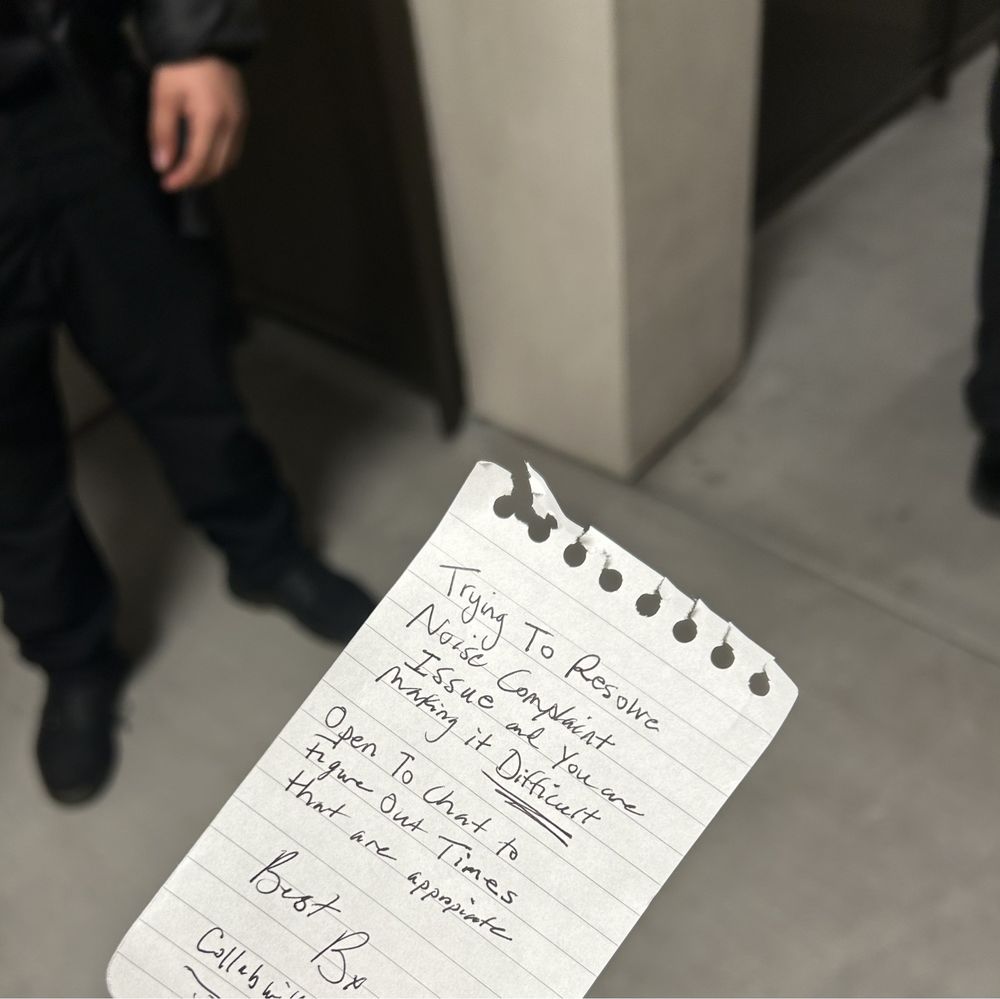 Trying To Resolve
Noise Complaint
Issue and You are
making it Difficult
Open To Chat to
figure Out Times
that are appropirate
Best